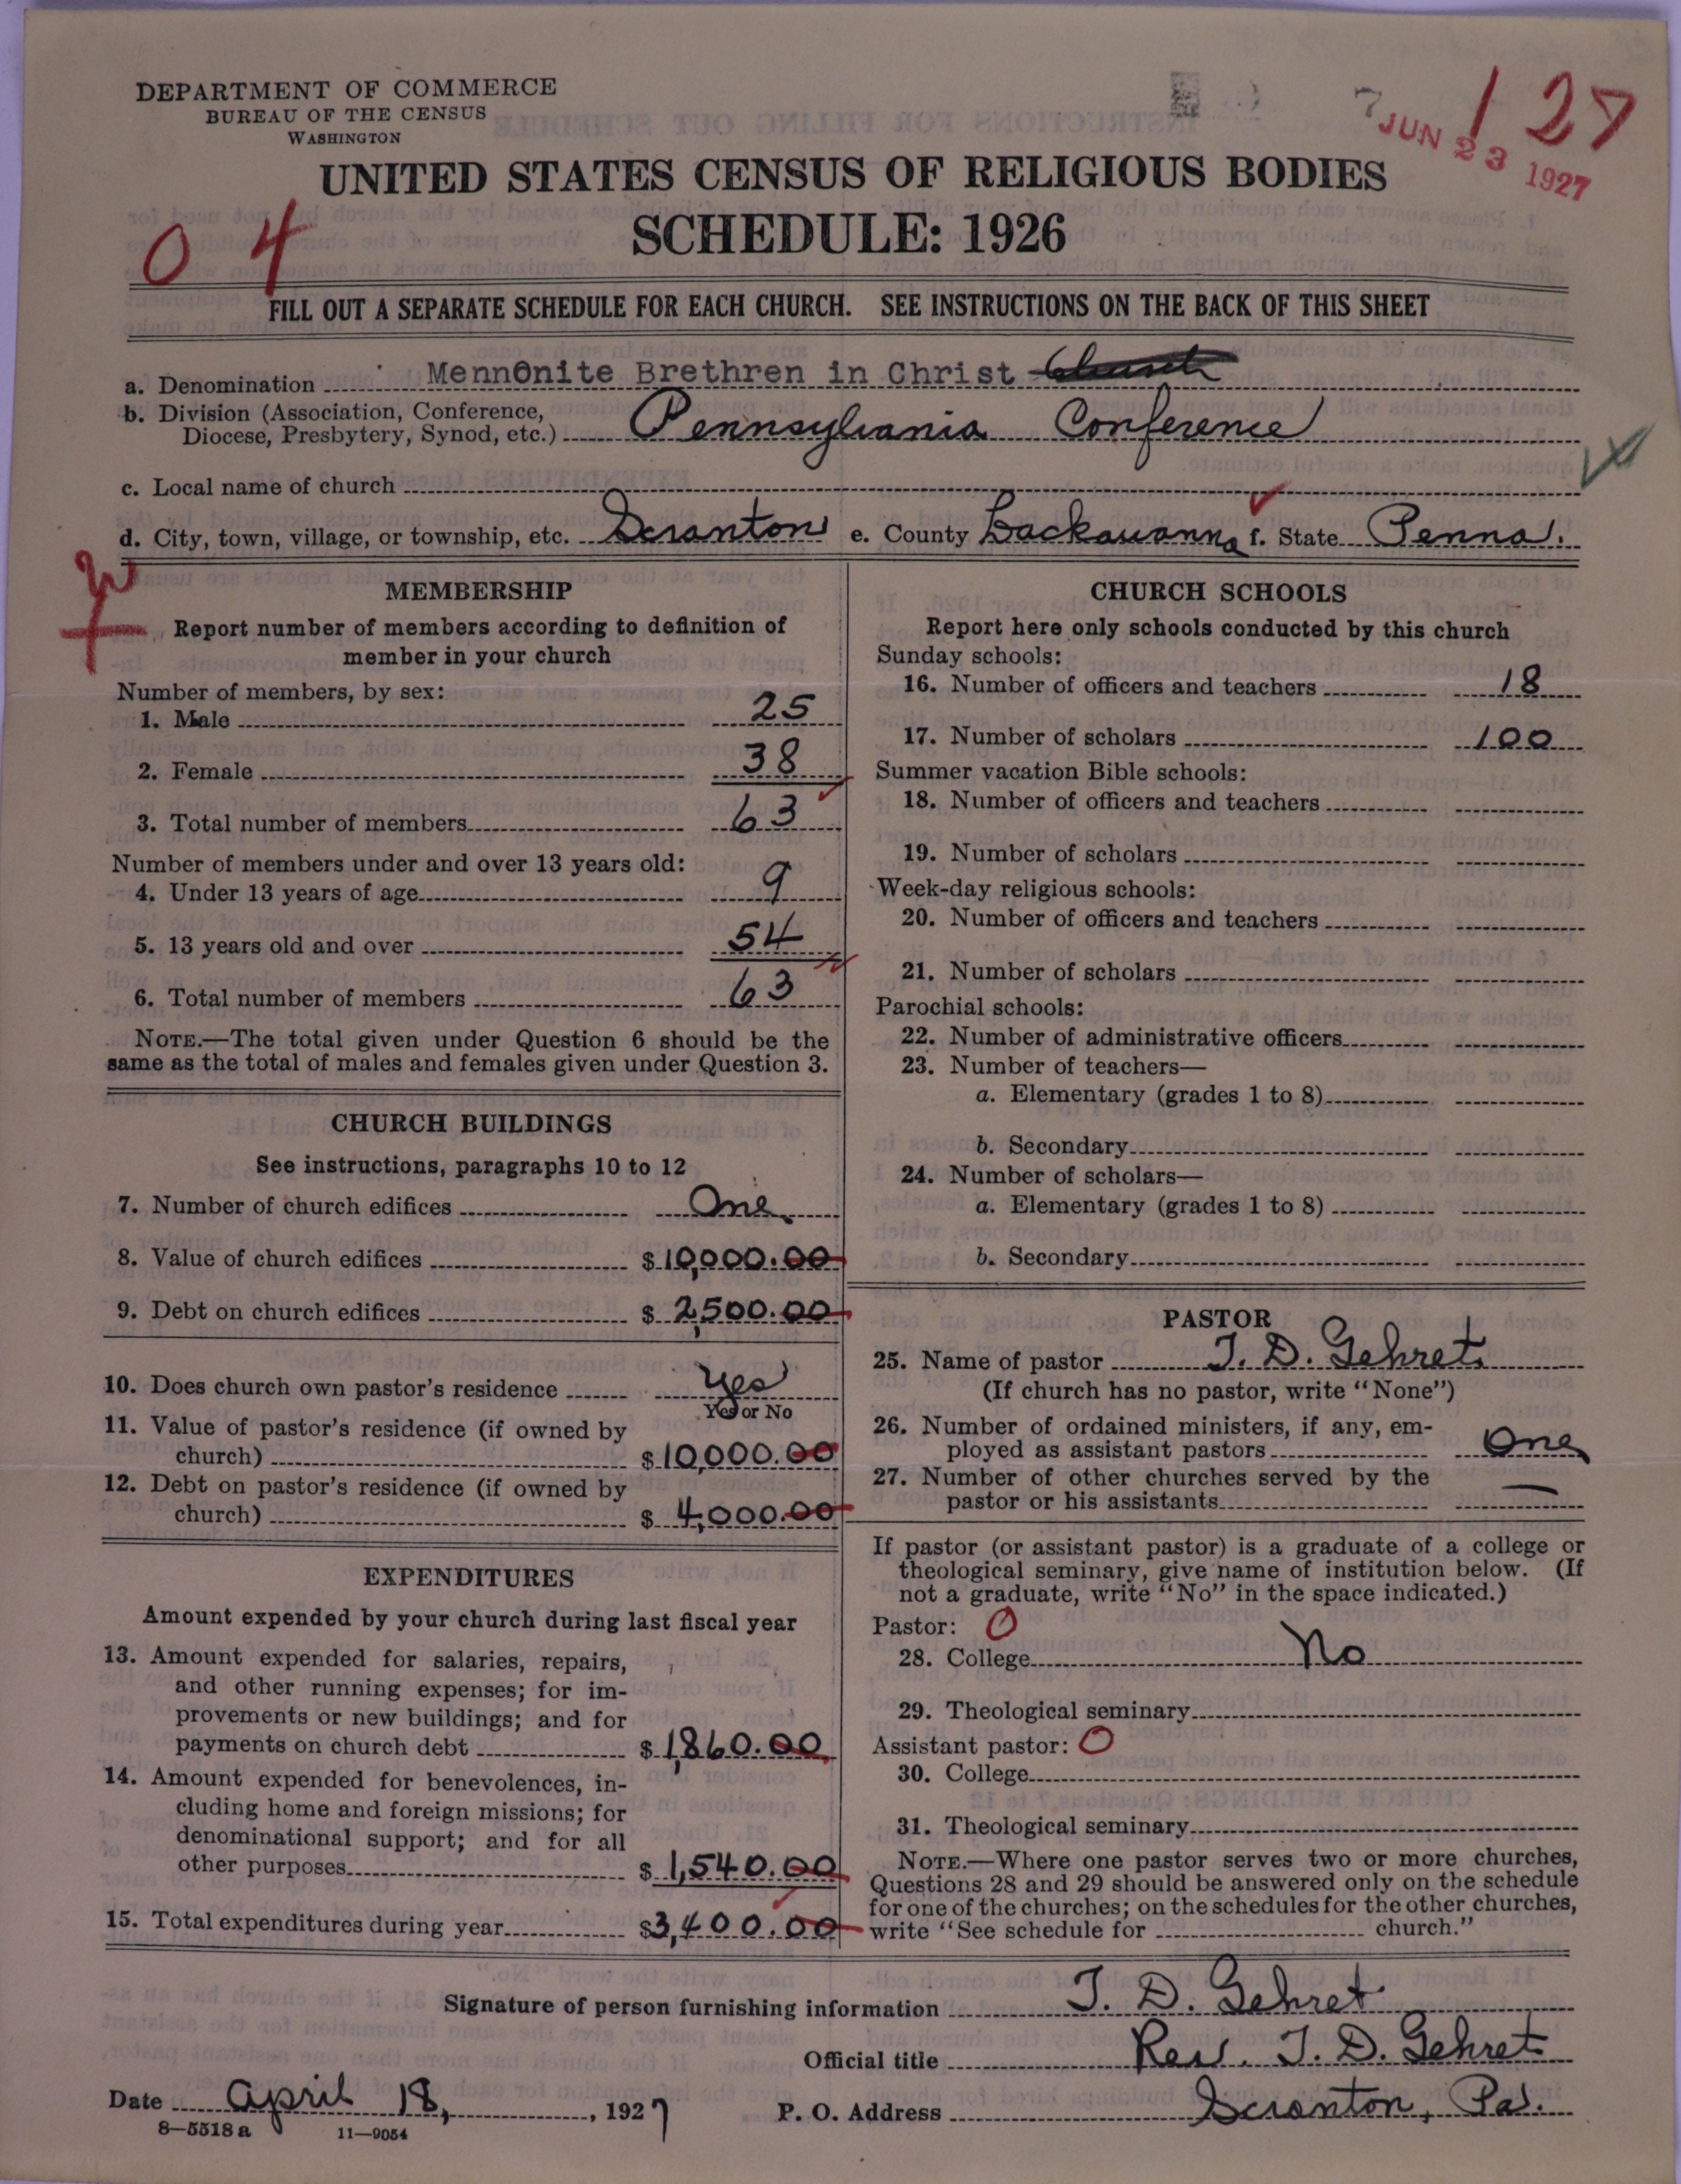 DEPARTMENT OF COMMERCE
BUREAU OF THE CENSUS
WASHINGTON
JUN 23 1927
1 27
UNITED STATES CENSUS OF RELIGIOUS BODIES
SCHEDULE: 1926
0 4
FILL OUT A SEPARATE SCHEDULE FOR EACH CHURCH. SEE INSTRUCTIONS ON THE BACK OF THIS SHEET
a. Denomination MennOnite Brethren in Christ
b. Division (Association, Conference,
Diocese, Presbytery, Synod, etc.) Pennsylvania Conference
c. Local name of church
d. City, town, village, or township, etc. Scranton e. County Lackawanna f. State Penna.
MEMBERSHIP
Report number of members according to definition of
member in your church
Number of members, by sex:
1. Male 25
2. Female 38
3. Total number of members 63
Number of members under and over 13 years old:
4. Under 13 years of age 9
5. 13 years old and over 54
6. Total number of members 63
NOTE.—The total given under Question 6 should be the
same as the total of males and females given under Question 3.
CHURCH BUILDINGS
See instructions, paragraphs 10 to 12
7. Number of church edifices One
8. Value of church edifices $ 10,000.00
9. Debt on church edifices $ 2,500.00
10. Does church own pastor's residence Yes
Yes or No
11. Value of pastor's residence (if owned by
church) $ 10,000.00
12. Debt on pastor's residence (if owned by
church) $ 4,000.00
EXPENDITURES
Amount expended by your church during last fiscal year
13. Amount expended for salaries, repairs,
and other running expenses; for im-
provements or new buildings; and for
payments on church debt $ 1,860.00
14. Amount expended for benevolences, in-
cluding home and foreign missions; for
denominational support; and for all
other purposes $ 1,540.00
15. Total expenditures during year $3,400.00
CHURCH SCHOOLS
Report here only schools conducted by this church
Sunday schools:
16. Number of officers and teachers 18
17. Number of scholars 100
Summer vacation Bible schools:
18. Number of officers and teachers
19. Number of scholars
Week-day religious schools:
20. Number of officers and teachers
21. Number of scholars
Parochial schools:
22. Number of administrative officers
23. Number of teachers—
a. Elementary (grades 1 to 8)
b. Secondary
24. Number of scholars—
a. Elementary (grades 1 to 8)
b. Secondary
PASTOR
25. Name of pastor T. D. Gehret
(If church has no pastor, write "None")
26. Number of ordained ministers, if any, em-
ployed as assistant pastors One
27. Number of other churches served by the
pastor or his assistants —
If pastor (or assistant pastor) is a graduate of a college or
theological seminary, give name of institution below. (If
not a graduate, write "No" in the space indicated.)
Pastor: 0
28. College No
29. Theological seminary
Assistant pastor: 0
30. College
31. Theological seminary
NOTE.—Where one pastor serves two or more churches,
Questions 28 and 29 should be answered only on the schedule
for one of the churches; on the schedules for the other churches,
write "See schedule for church."
Signature of person furnishing information T. D. Gehret
Official title Rev. T. D. Gehret
Date April 18, 1927 P. O. Address Scranton, Pa.
8—5518 a 11—9054